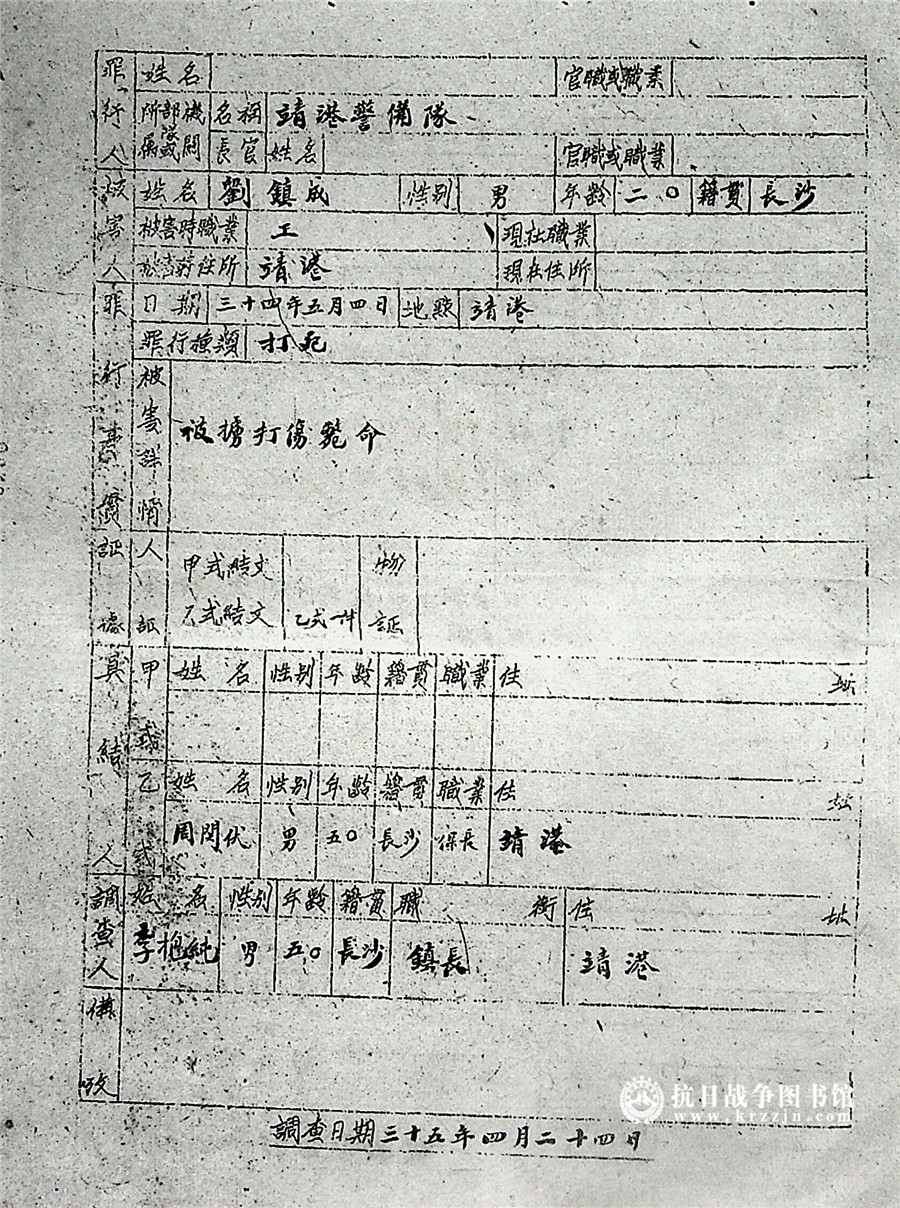 罪行人 姓名 官職或職業
所屬部隊或機關 名稱 靖港警備隊
長官姓名 官職或職業
被害人 姓名 劉鎮成 性别 男 年齡 二〇 籍貫 長沙
被害時職業 工 現在職業
被害時住所 靖港 現在住所
罪行事實 日期 三十四年五月四日 地點 靖港
罪行種類 打死
被害詳情 被擄打傷斃命
証據 人証 甲式結文 物証
乙式結文 乙式一件
具結人 甲式 姓名 性别 年齡 籍貫 職業 住址
或乙式 姓名 性别 年齡 籍貫 職業 住址
周閏伏 男 五〇 長沙 保長 靖港
調查人 姓名 性别 年齡 籍貫 職銜 住址
李 純 男 五〇 長沙 鎮長 靖港
備攷
調查日期三十五年四月二十四日
抗日战争图书馆
www.krzzjn.com